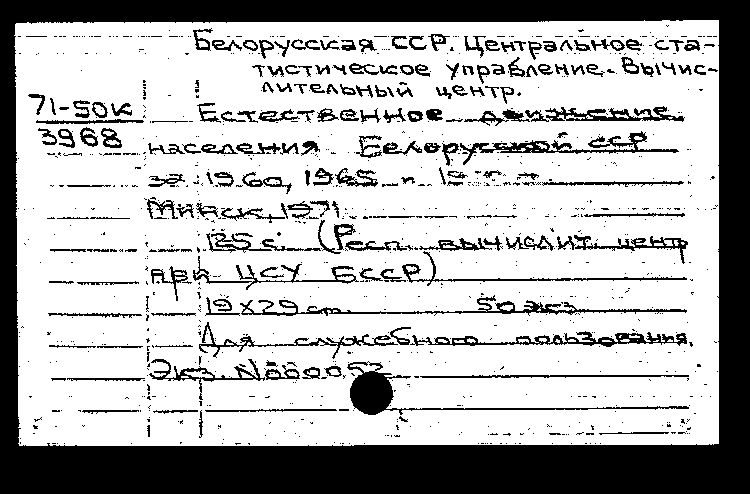 Белорусская ССР. Центральное ста-
тистическое управление. Вычис-
лительный центр.
71-50к
3968
Естественное движение
населения Белорусской ССР
за 1960, 1965 и
Минск, 1971
125 с. (Респ. вычислит. центр
при ЦСУ БССР)
19х29 см. 50 экз
Для служебного пользования.
Экз. №000052